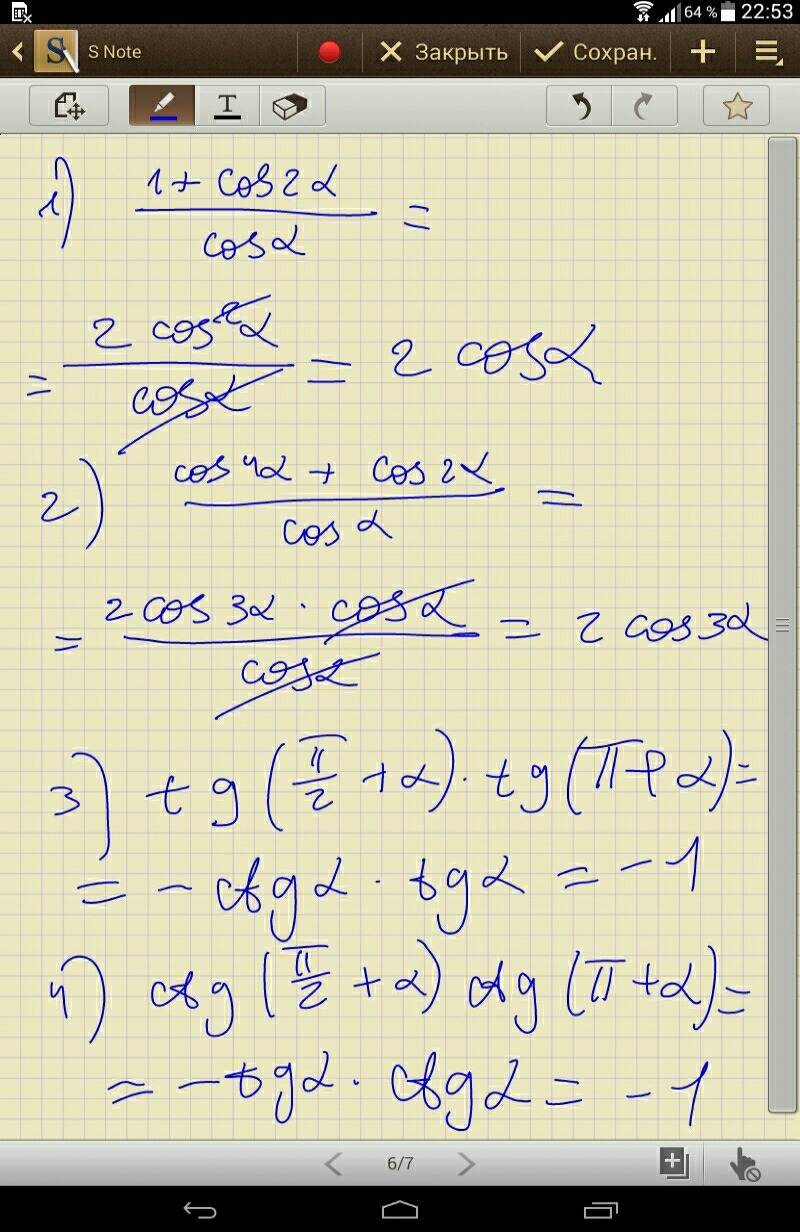 64 % 22:53
S Note Закрыть Сохран.
T
1) (1 + cos2α)/(cosα) =
= (2 cos²α)/(cosα) = 2 cosα
2) (cos4α + cos2α)/(cosα) =
= (2 cos3α · cosα)/(cosα) = 2 cos3α
3) tg(π/2 + α) · tg(π + α) =
= - ctgα · tgα = -1
4) ctg(π/2 + α) ctg(π + α) =
= - tgα · ctgα = -1
6/7